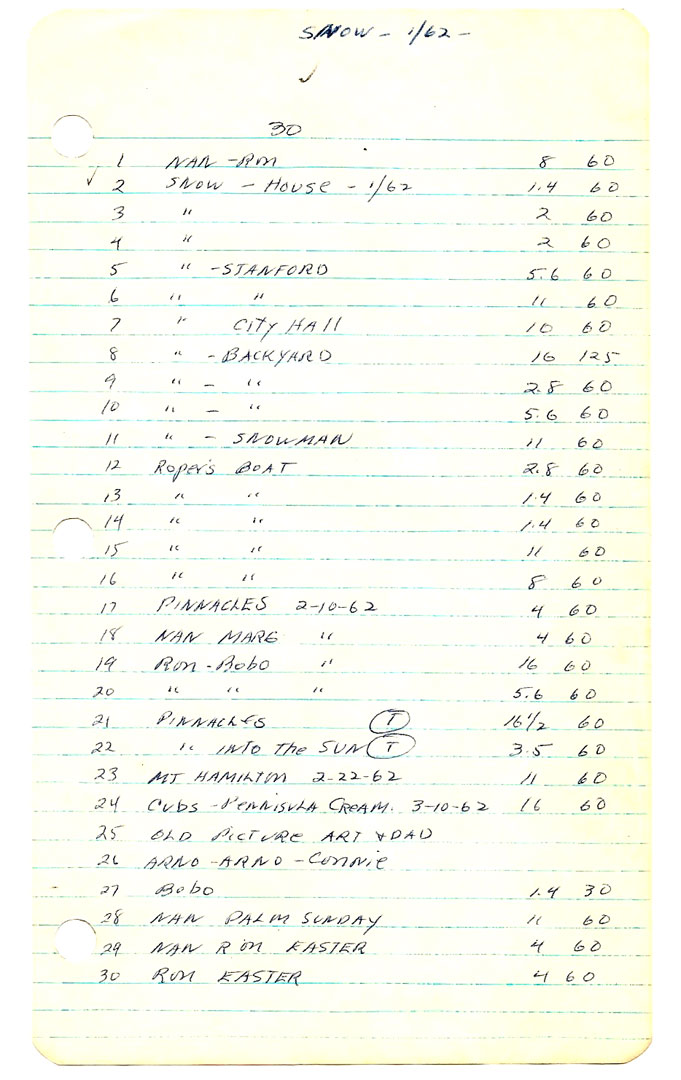 SNOW - 1/62 -
✓
30
1 NAN - RON 8 60
✓ 2 SNOW - HOUSE - 1/62 1.4 60
3 " 2 60
4 " 2 60
5 " - STANFORD 5.6 60
6 " " 11 60
7 " CITY HALL 10 60
8 " - BACKYARD 16 125
9 " - " 2.8 60
10 " - " 5.6 60
11 " - SNOWMAN 11 60
12 Roper's BOAT 2.8 60
13 " " 1.4 60
14 " " 1.4 60
15 " " 11 60
16 " " 8 60
17 PINNACLES 2-10-62 4 60
18 NAN MARG " 4 60
19 RON - Bobo " 16 60
20 " " " 5.6 60
21 PINNACLES T 16 1/2 60
22 " INTO THE SUN T 3.5 60
23 MT HAMILTON 2-22-62 11 60
24 CUBS - PENNISULA CREAM. 3-10-62 16 60
25 OLD PICTURE ART & DAD
26 ARNO - ARNO - CONNIE
27 Bobo 1.4 30
28 NAN PALM SUNDAY 11 60
29 NAN RON EASTER 4 60
30 RON EASTER 4 60